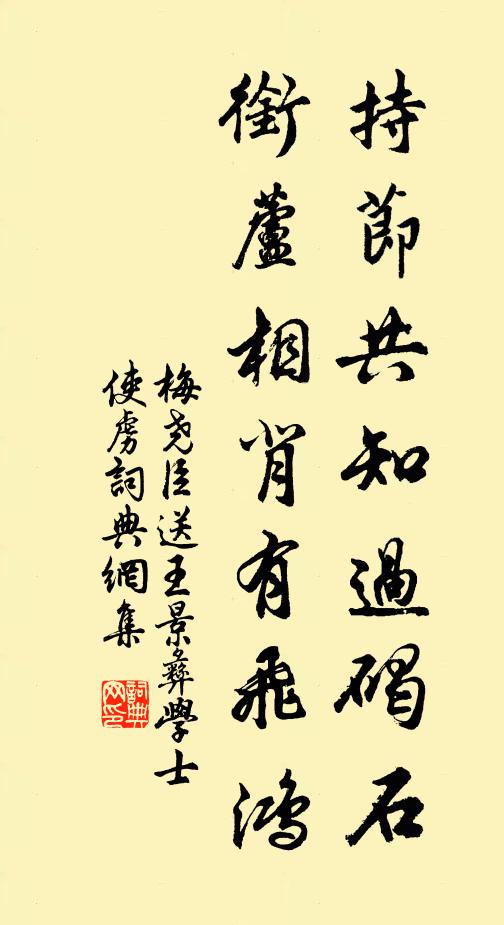 持節共知過碣石
銜蘆相背有飛鴻
梅尧臣送王景彝學士
使虜詞典網集
詞典网印